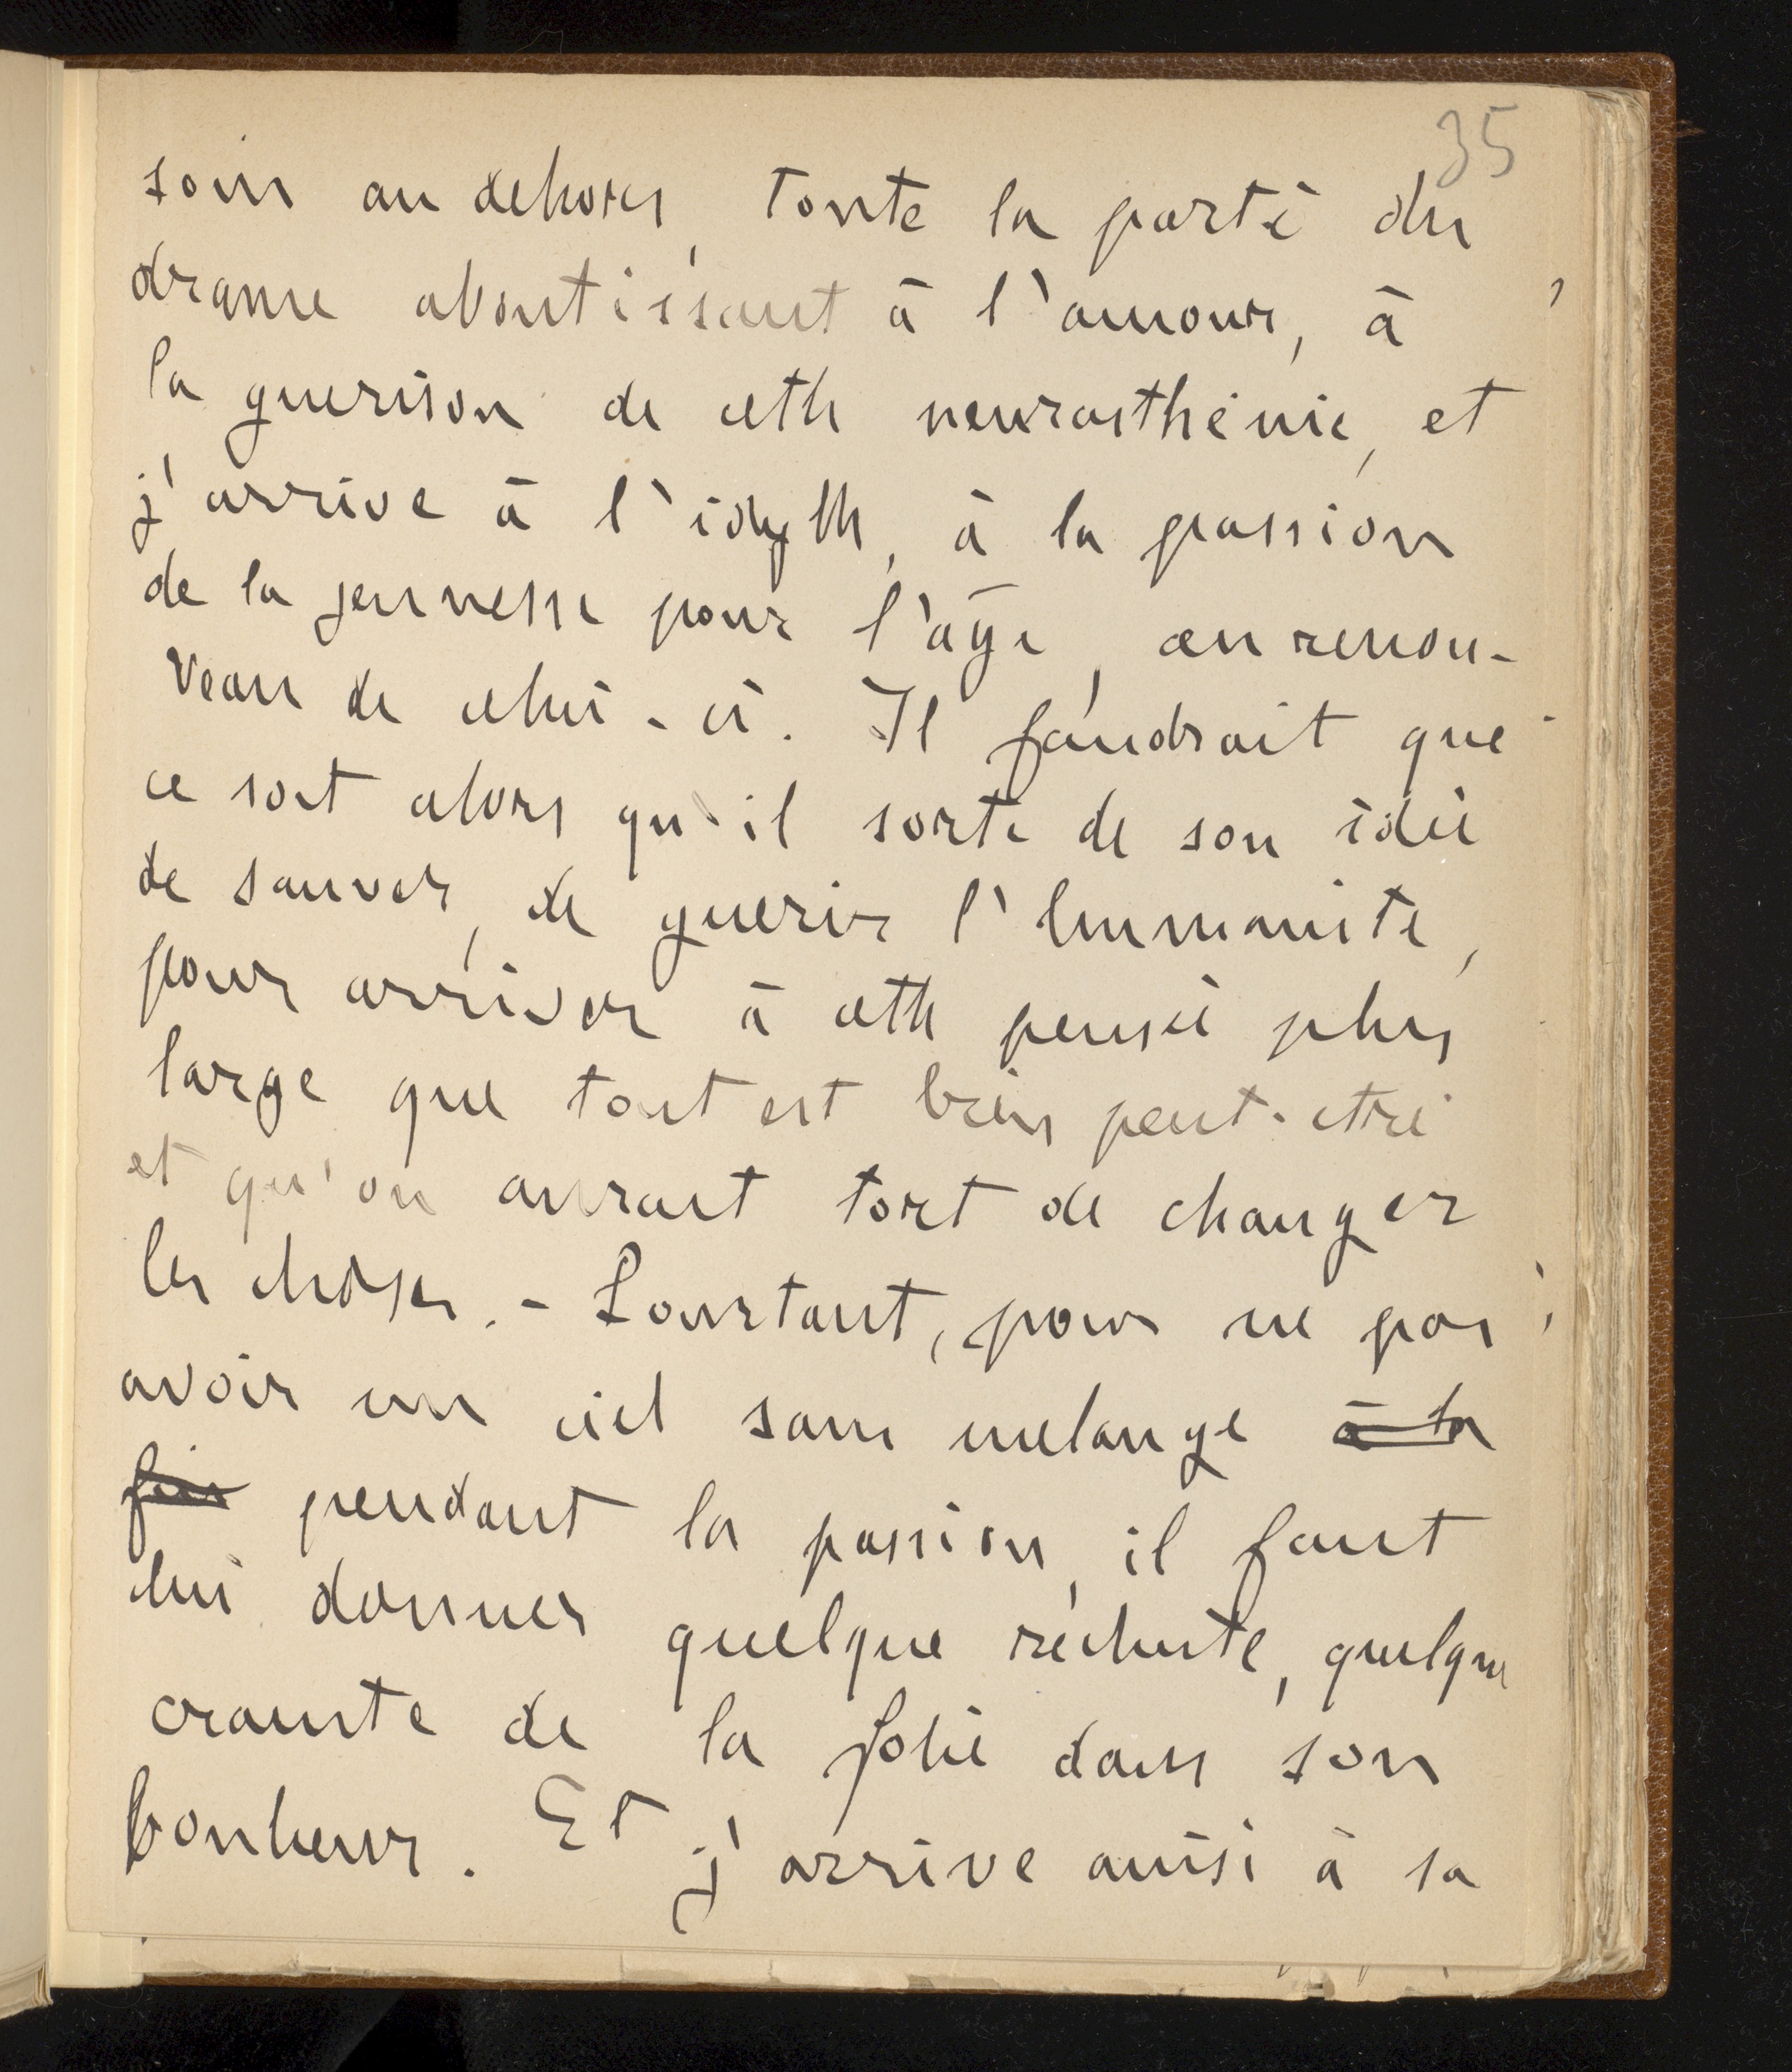 35
soin au dehors, toute la partie du
drame aboutissant à l'amour, à
la guerison de cette neurasthénie, et
j'arrive à l'idylle, à la passion
de la jeunesse pour l'âge, au renou-
veau de celui-ci. Il faudrait que
ce soit alors qu'il sorte de son idée
de sauver, de guerir l'humanité,
pour arriver à cette pensée plus
large que tout est bien peut-être
et qu'on aurait tort de changer
les choses. - Pourtant, pour ne pas
avoir un ciel sans melange à la
fin pendant la passion, il faut
lui donner quelque rechute, quelque
crainte de la folie dans son
bonheur. Et j'arrive ainsi à sa